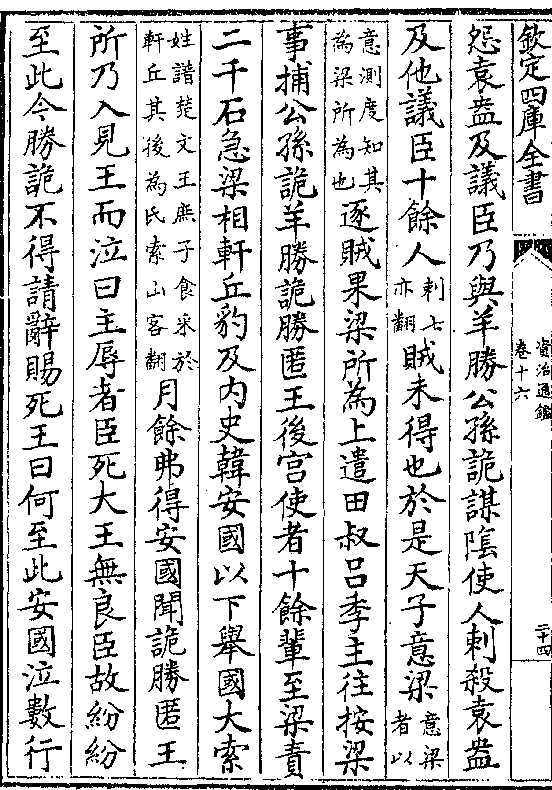 欽定四庫全書
資治通鑑
卷十六
二十四
怨袁盎及議臣乃與羊勝公孫詭謀隂使人刺殺袁盎
及他議臣十餘人刺七亦翻賊未得也於是天子意梁意梁者以
意測度知其為梁所為也逐賊果梁所為上遣田叔吕季主往按梁
事捕公孫詭羊勝詭勝匿王後宫使者十餘輩至梁責
二千石急梁相軒丘豹及内史韓安國以下舉國大索
姓譜楚文王庶子食采於軒丘其後為氏索山客翻月餘弗得安國聞詭勝匿王
所乃入見王而泣曰主辱者臣死大王無良臣故紛紛
至此今勝詭不得請辭賜死王曰何至此安國泣數行